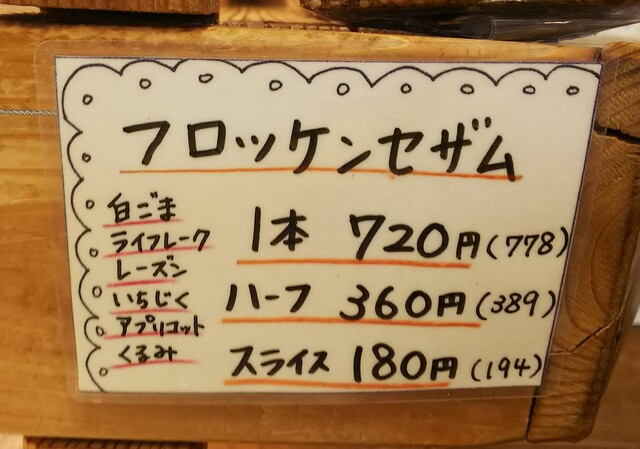 フロッケンセザム
白ごま
ライフレーク
レーズン
いちじく
アプリコット
くるみ
1本 720円(778)
ハーフ 360円(389)
スライス 180円(194)